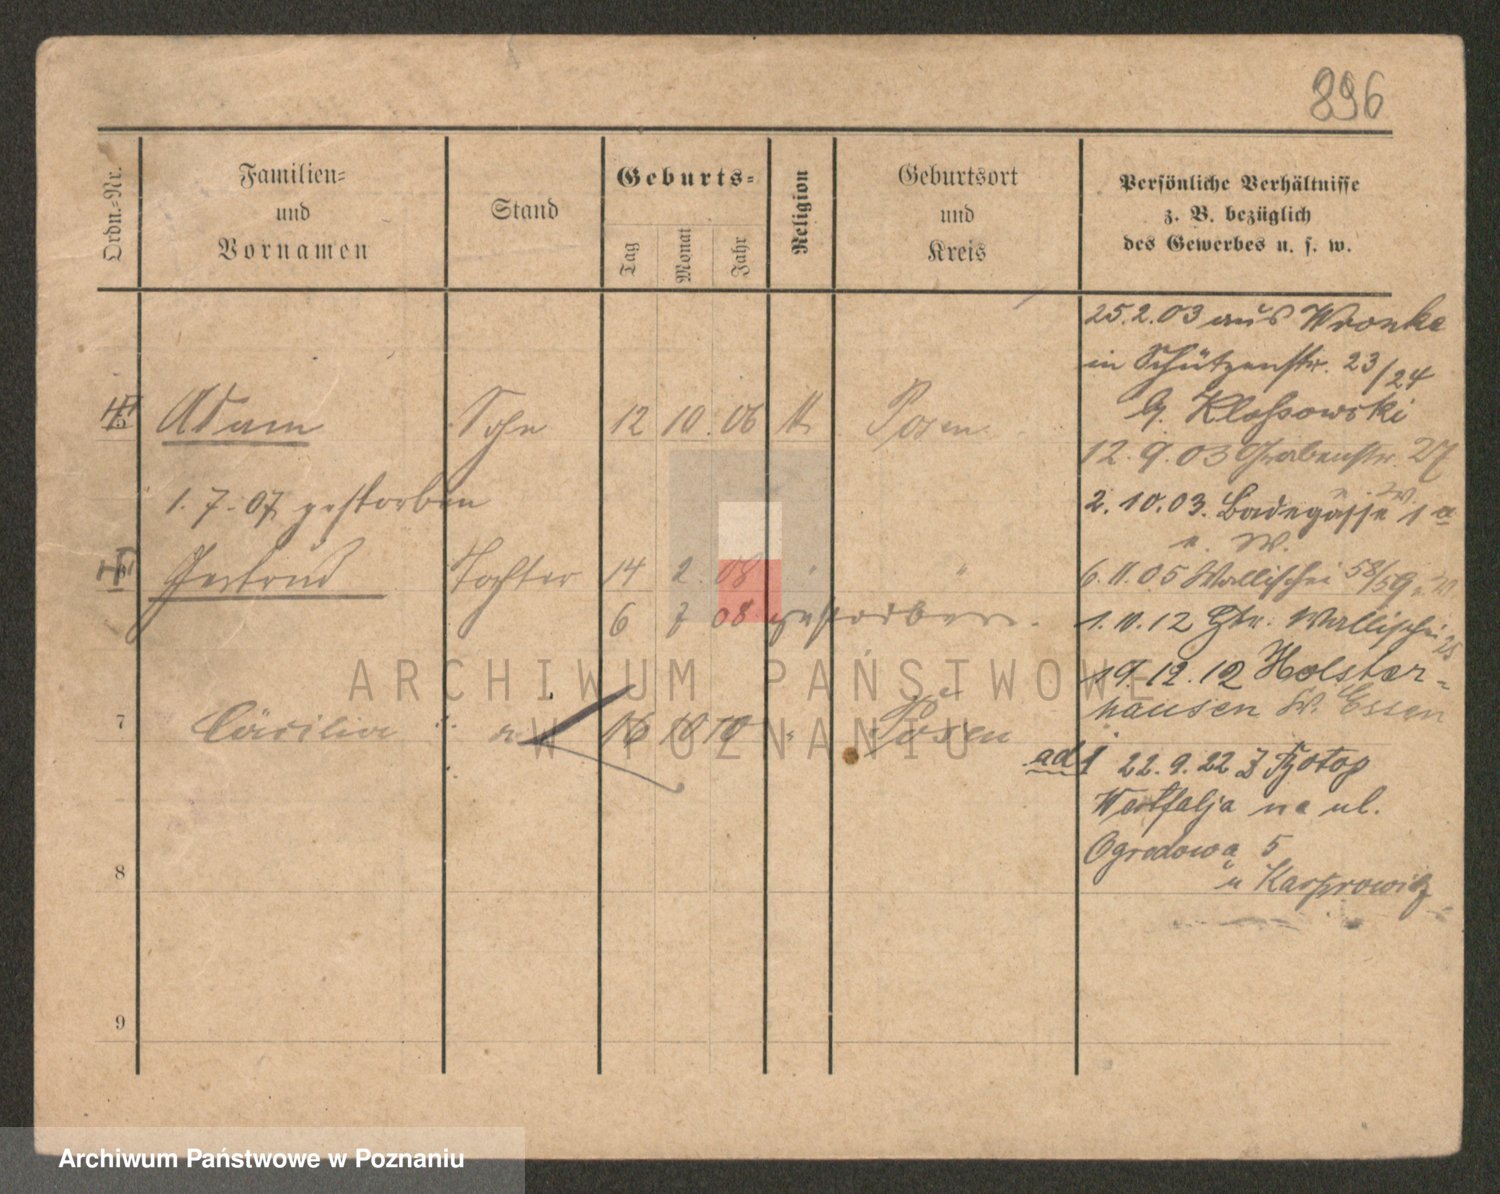 896
Ordn.-Nr.
Familien-
und
Vornamen
Stand
Geburts-
Tag
Monat
Jahr
Religion
Geburtsort
und
Kreis
Persönliche Verhältnisse
z. B. bezüglich
des Gewerbes u. s. w.
25.2.03 aus Wronke
in Schützenstr. 23/24
Klossowski
Adam Sohn 12 10. 06 Posen
12.9.03 Grabenstr. 27
1.7.07 gestorben
2.10.03. Badegasse 1a
u. W.
Gertrud Tochter 14 2. 08 " "
6.11.05 Wallischei 58/59
6 7 08 gestorben.
1.11.12 Wallischei
19.12.12 Holster-
hausen Essen
7 Cäcilia " 16 10 10 " Posen
ad 1 22.9.22
Westfalja na ul.
Ogrodowa 5
8
u Kasprowicz
9
ARCHIWUM PAŃSTWOWE
W POZNANIU
Archiwum Państwowe w Poznaniu